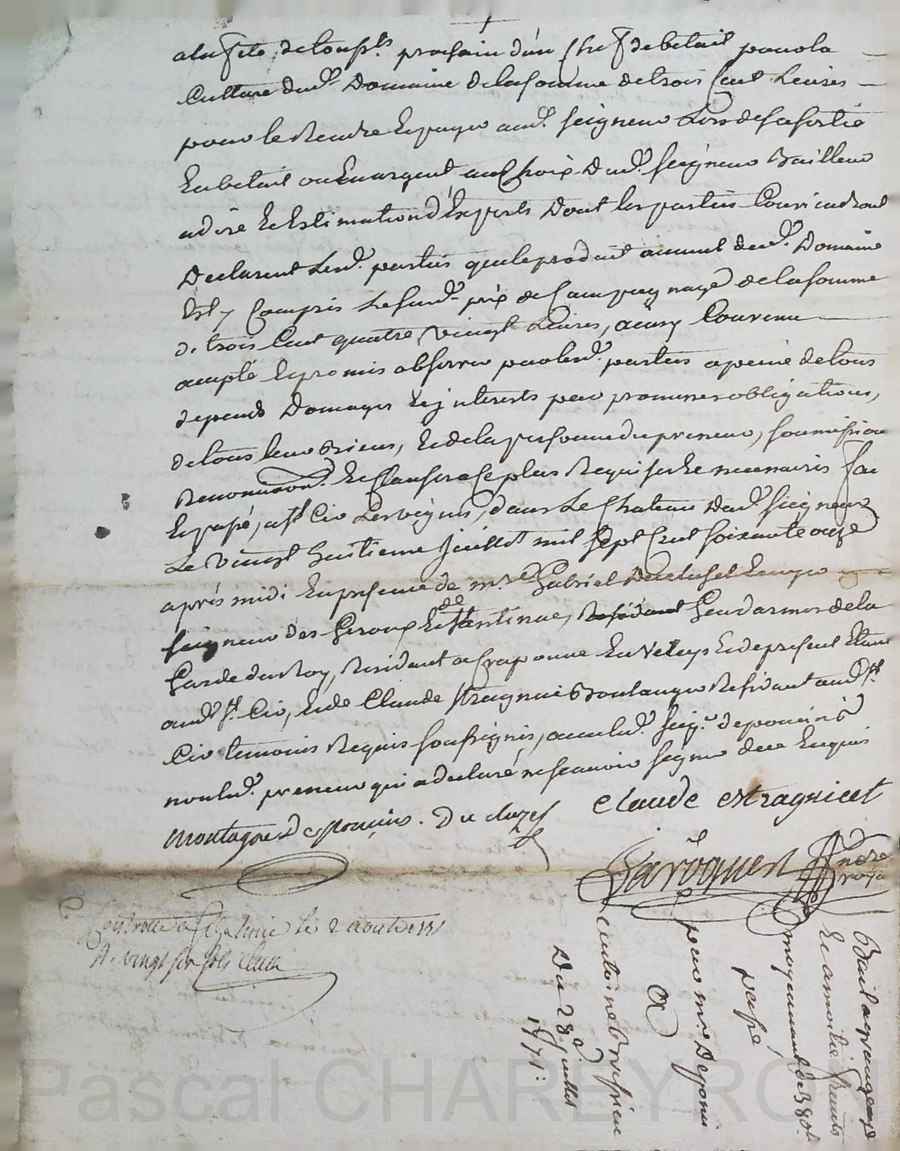 a la fête de Toussts prochain d'un cheptel de betail pour la
Culture dud. Domaine de la somme de trois Cent Livres
pour le Rendre Et payer aud. seigneur Lors de sa sortie
En betail ou En argent au Choix dud. seigneur Bailleur
a dire Et Estimation d'Experts Dont les parties Conviendront
Declarent Lesd. parties que le produit annuel dud. Domaine
Est y Compris Le susd. prix de la somme
de trois Cent quatre vingt Livres, ainsy Convenu
accepté Et promis observer par lesd. parties a peine de tous
depends Domages Et jnterests pour promesses obligations,
de tous leurs Biens, Et de la personne du preneur, soumissions
Renonciaons. Et Clauses a ce plus Requises Et necessaires fait
Et passé, a st Cir Les vignes, dans Le Chateau dud. seigneur
Le vingt huitieme Juillet mil sept Cent soixante onze
après midi En presence de mre. Gabriel Ecuyer
seigneur des Et, Gendarmes de la
Garde du Roy, Residant a Craponne En Velay Et de present Etant
aud. st. Cir, Et de Claude Estragniet Boulanger Residant aud. st.
Cir temoins Requis soussignés, avec led. seigr. de poncins
non led. preneur qui a declaré ne scavoir signer de ce Enquis
Montagne de poncins. Du
Claude estragniet
Bail a grangeage
Et a moitié fruits
moyennant de 380.lt
passé,
pour mr. De poncins
a
Du 28e. Juillet
1771:
Controllé a le 2 aout 1771
R. vingt six sols
Pascal CHAREYRON